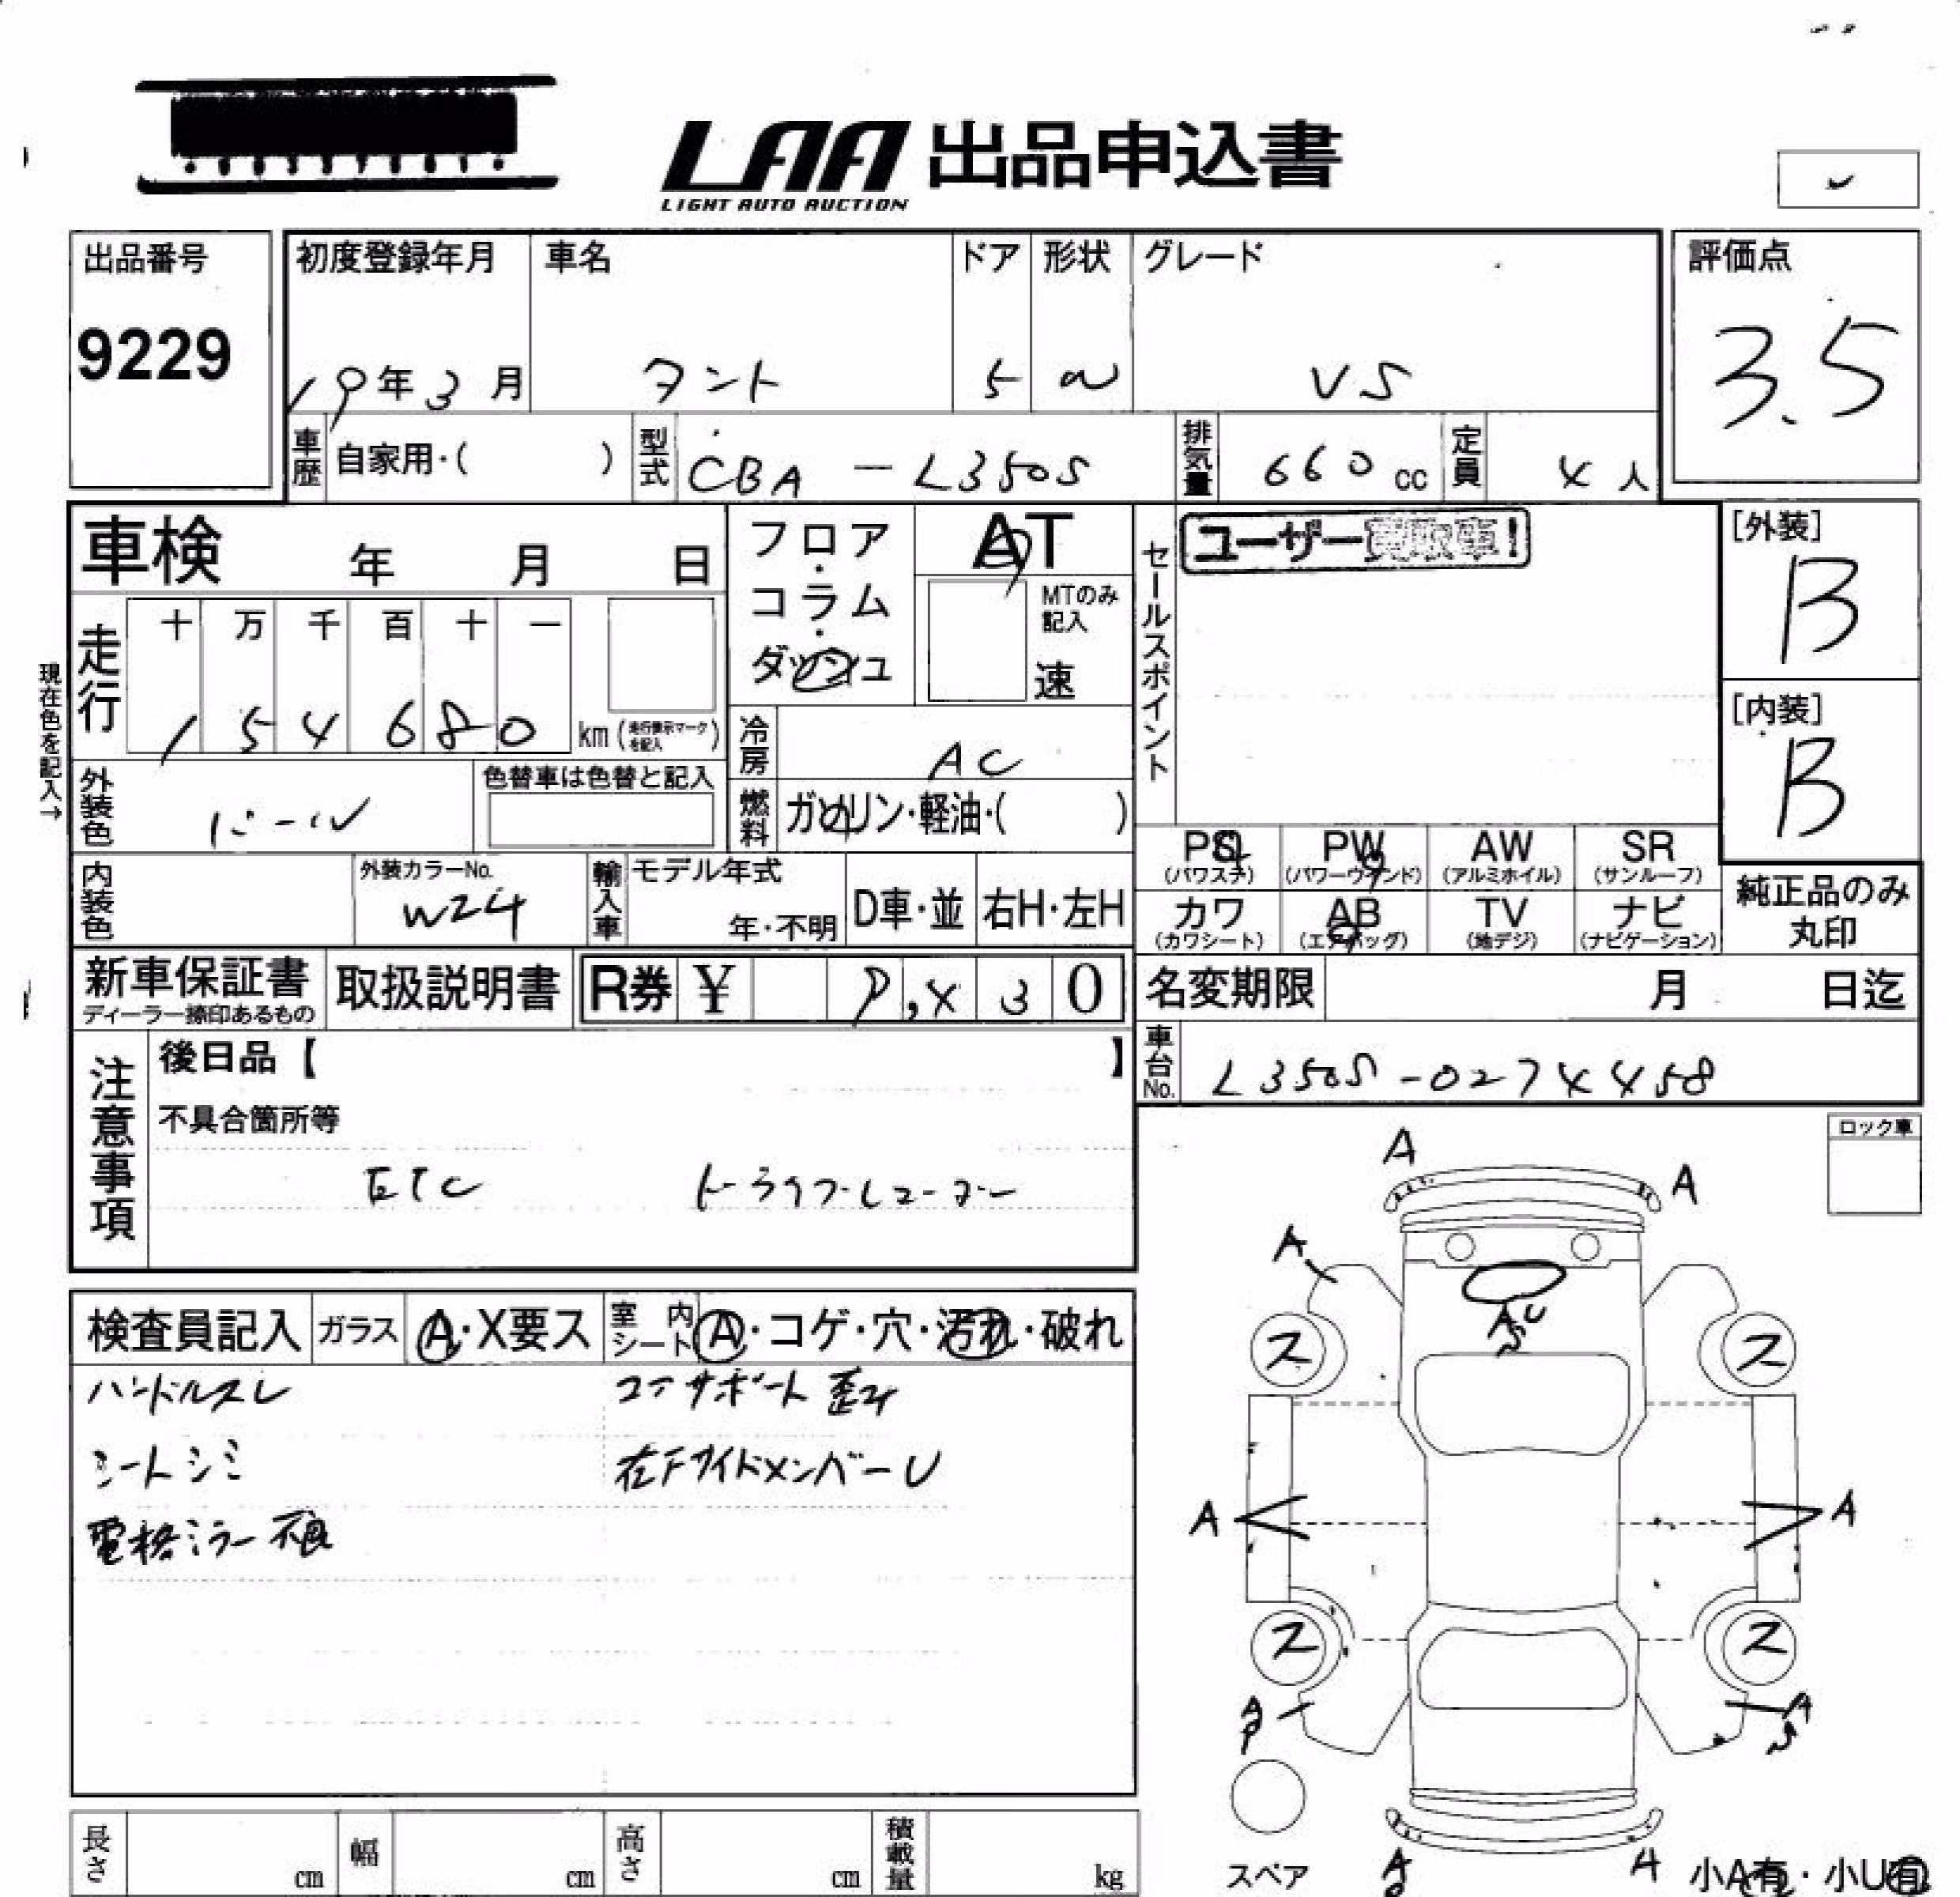 LAA 出品申込書
LIGHT AUTO AUCTION
出品番号
9229
初度登録年月
19年3月
車名
タント
ドア
5
形状
グレード
VS
評価点
3.5
車歴
自家用・( )
型式
CBA-L350S
排気量
660 cc
定員
4 人
車検 年 月 日
フロア・コラム・ダッシュ
AT
MTのみ記入
速
セールスポイント
ユーザー買取車!
[外装]
B
[内装]
B
現在色を記入→
走行
十 万 千 百 十 一
1 5 4 6 8 0 km (走行表示マークを記入)
冷房
AC
外装色
パール
色替車は色替と記入
燃料
ガソリン・軽油・( )
PS
(パワステ)
PW
(パワーウインド)
AW
(アルミホイル)
SR
(サンルーフ)
カワ
(カワシート)
AB
(エアバッグ)
TV
(地デジ)
ナビ
(ナビゲーション)
純正品のみ
丸印
内装色
外装カラーNo.
W24
輸入車
モデル年式
年・不明
D車・並
右H・左H
新車保証書
ディーラー捺印あるもの
取扱説明書
R券 ¥ 30
名変期限 月 日迄
車台No.
L350S-0274458
注意事項
後日品【 】
不具合箇所等
ETC ドライブレコーダー
ロック車
検査員記入
ガラス
A・X要ス
室内シート
A・コゲ・穴・汚れ・破れ
ハンドルスレ
コアサポート歪み
シートシミ
右Fサイドメンバー U
電格ミラー不良
A
A
A
AU
ス
ス
A
A
ス
ス
A
A
スペア
A
A
小A有・小U有
長さ cm
幅 cm
高さ cm
積載量 kg